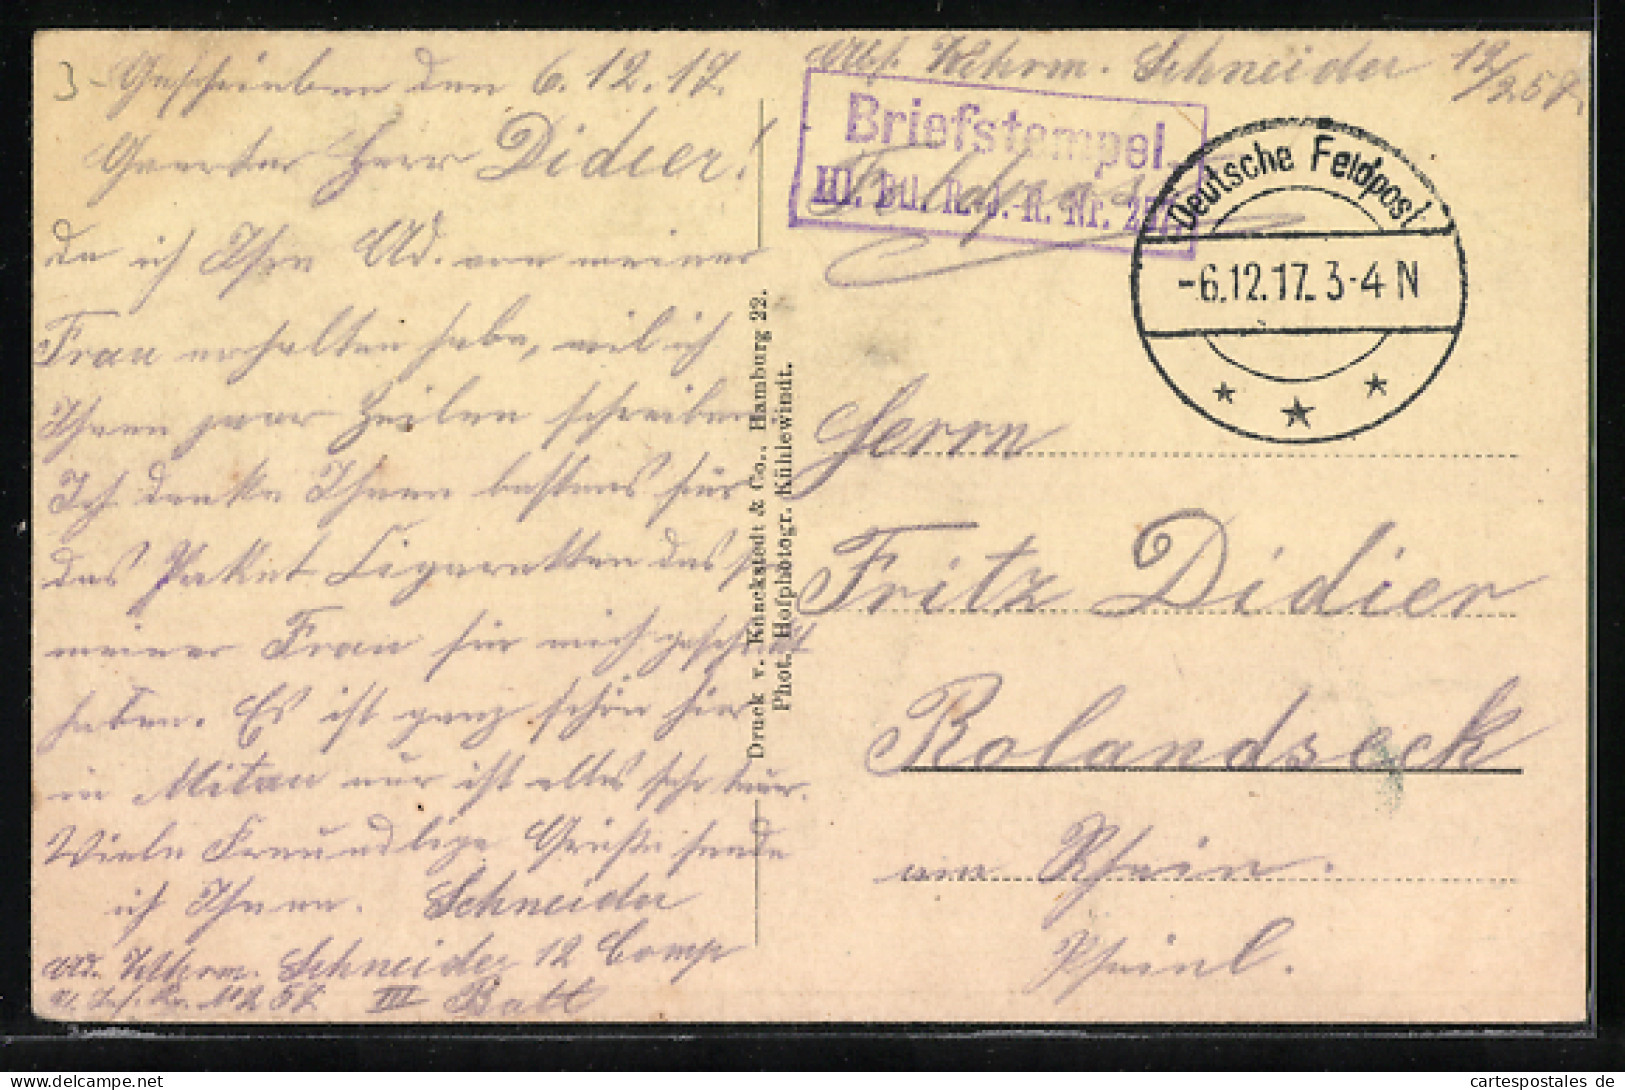 3-
Geschrieben den 6.12.17.
Geerter Herr Didier!
da ich Ihre Ad. von meiner
Frau erhalten habe, will ich
Ihnen paar Zeilen schreiben
Ich danke Ihnen bestens für
das Paket Zigaretten das
meiner Frau für mich geschickt
haben. Es ist ganz schön hier
in Mitau nur ist alles sehr teuer.
Viele Freundlige Grüße sende
ich Ihnen. Schneider
Ad. Wehrm. Schneider 12 Comp
257 III Batt
Druck v. Knackstedt & Co., Hamburg 22.
Phot. Hofphotogr. Kühlewindt.
Abs. Wehrm. Schneider 12/257.
Briefstempel.
III. Btl. R.-J.-R. Nr. 257
Feldpost
Deutsche Feldpost
-6.12.17. 3-4 N
Herrn
Fritz Didier
Rolandseck
am Rhein.
Rheinl.
cartespostales de